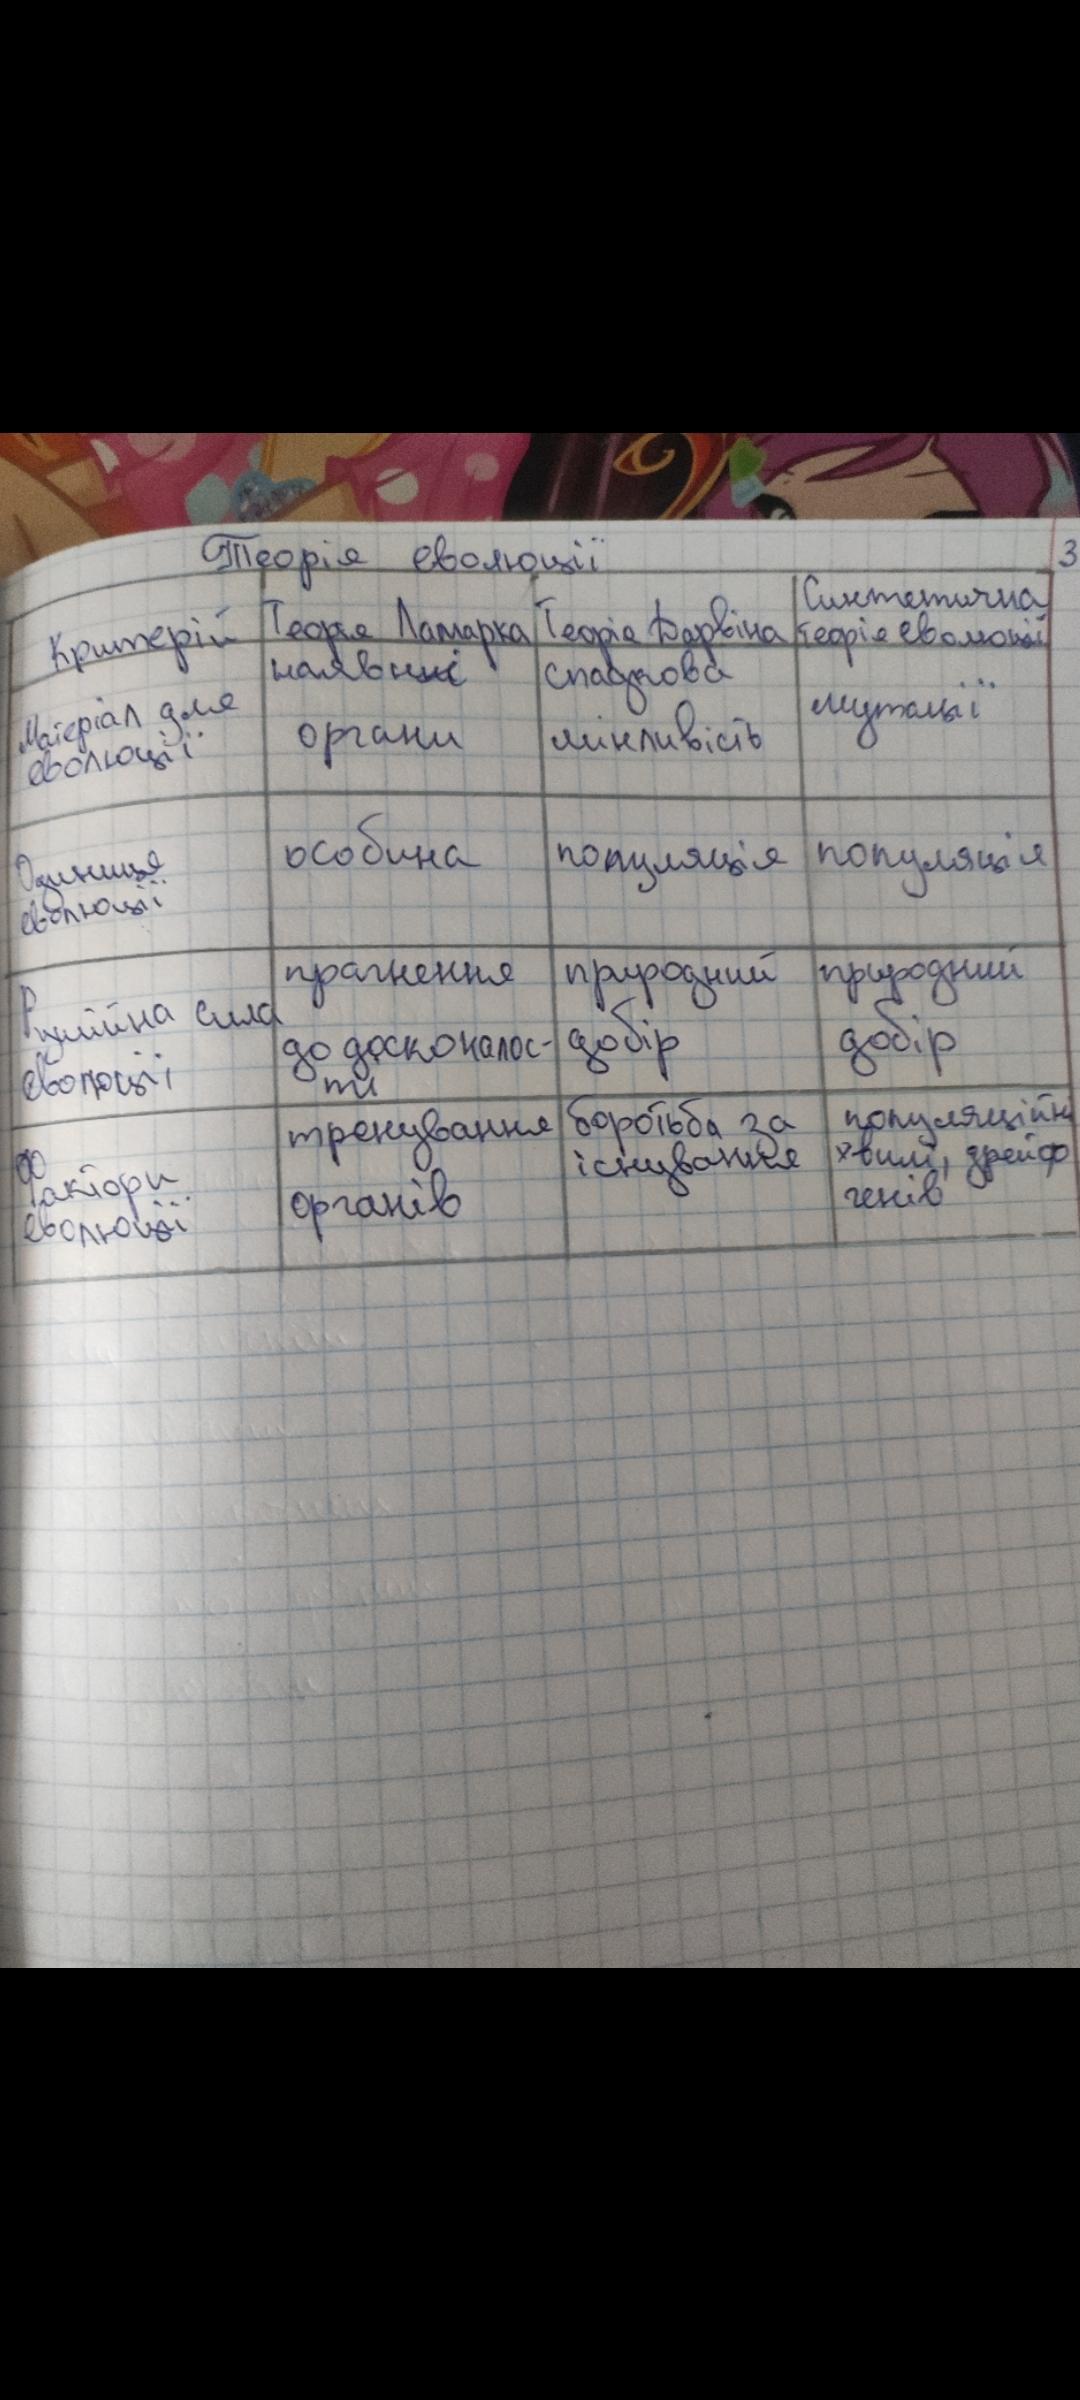 Теорія еволюції
3
Критерій
Теорія Ламарка
Теорія Дарвіна
Синтетична
теорія еволюції
Матеріал для
еволюції
наявні
органи
спадкова
мінливість
мутації
Одиниця
еволюції
особина
популяція
популяція
Рушійна сила
еволюції
прагнення
до досконалос-
ти
природний
добір
природний
добір
Фактори
еволюції
тренування
органів
боротьба за
існування
популяційні
хвилі, дрейф
генів